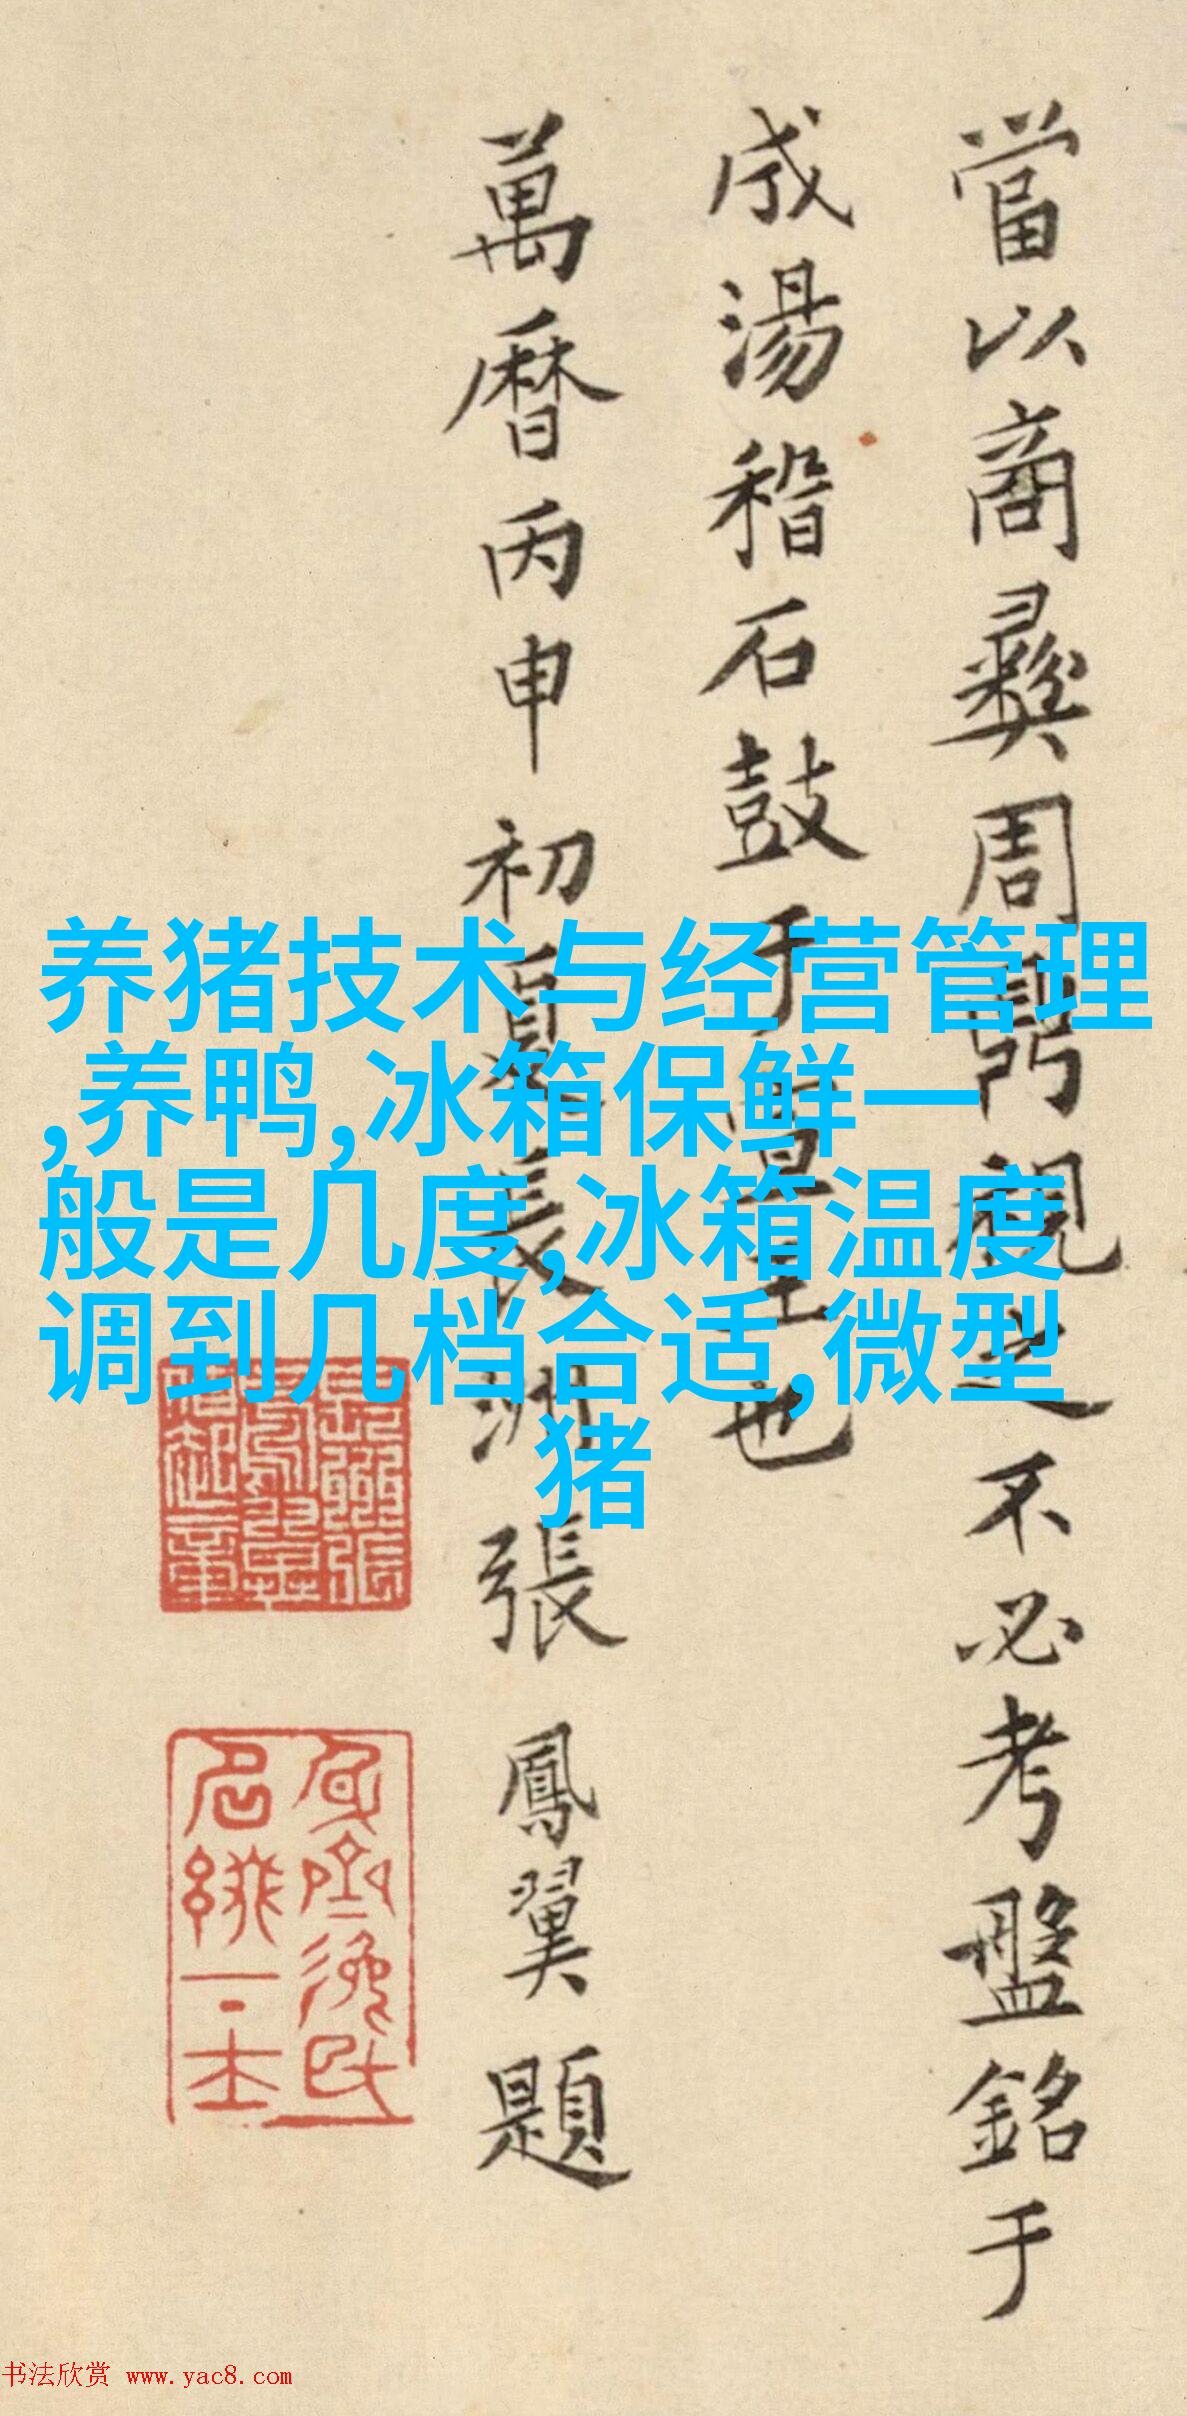 當以商彝周鬲視之不必考盤銘于
成湯稽石鼓于宣王也
萬曆丙申初夏長洲張鳳翼題
养猪技术与经营管理
,养鸭,冰箱保鲜一
般是几度,冰箱温度
调到几档合适,微型
猪
书法欣赏 www.yac8.com